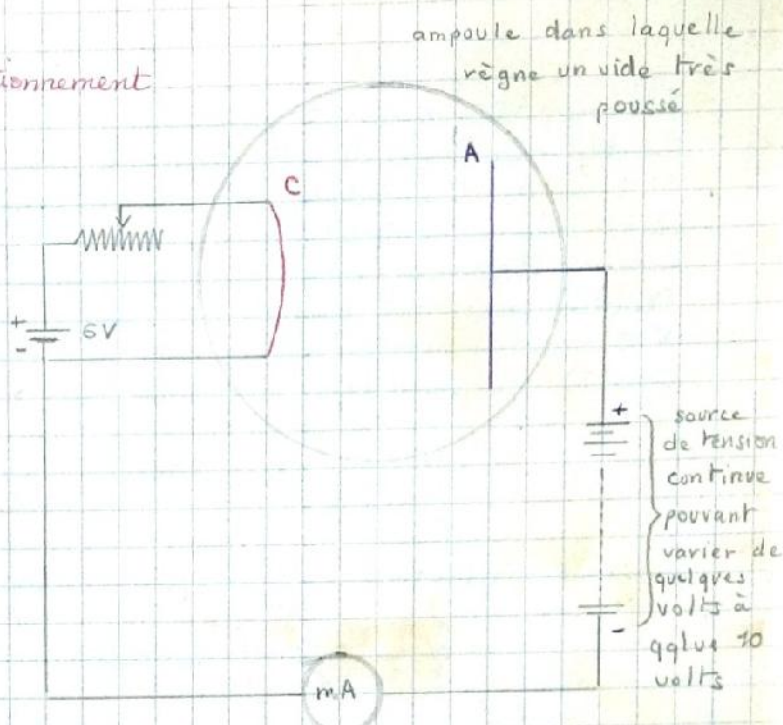 ionnement
ampoule dans laquelle
règne un vide très
poussé
A
C
+
-
6V
+
source
de tension
continue
pouvant
varier de
quelques
volts à
-
10
volts
mA